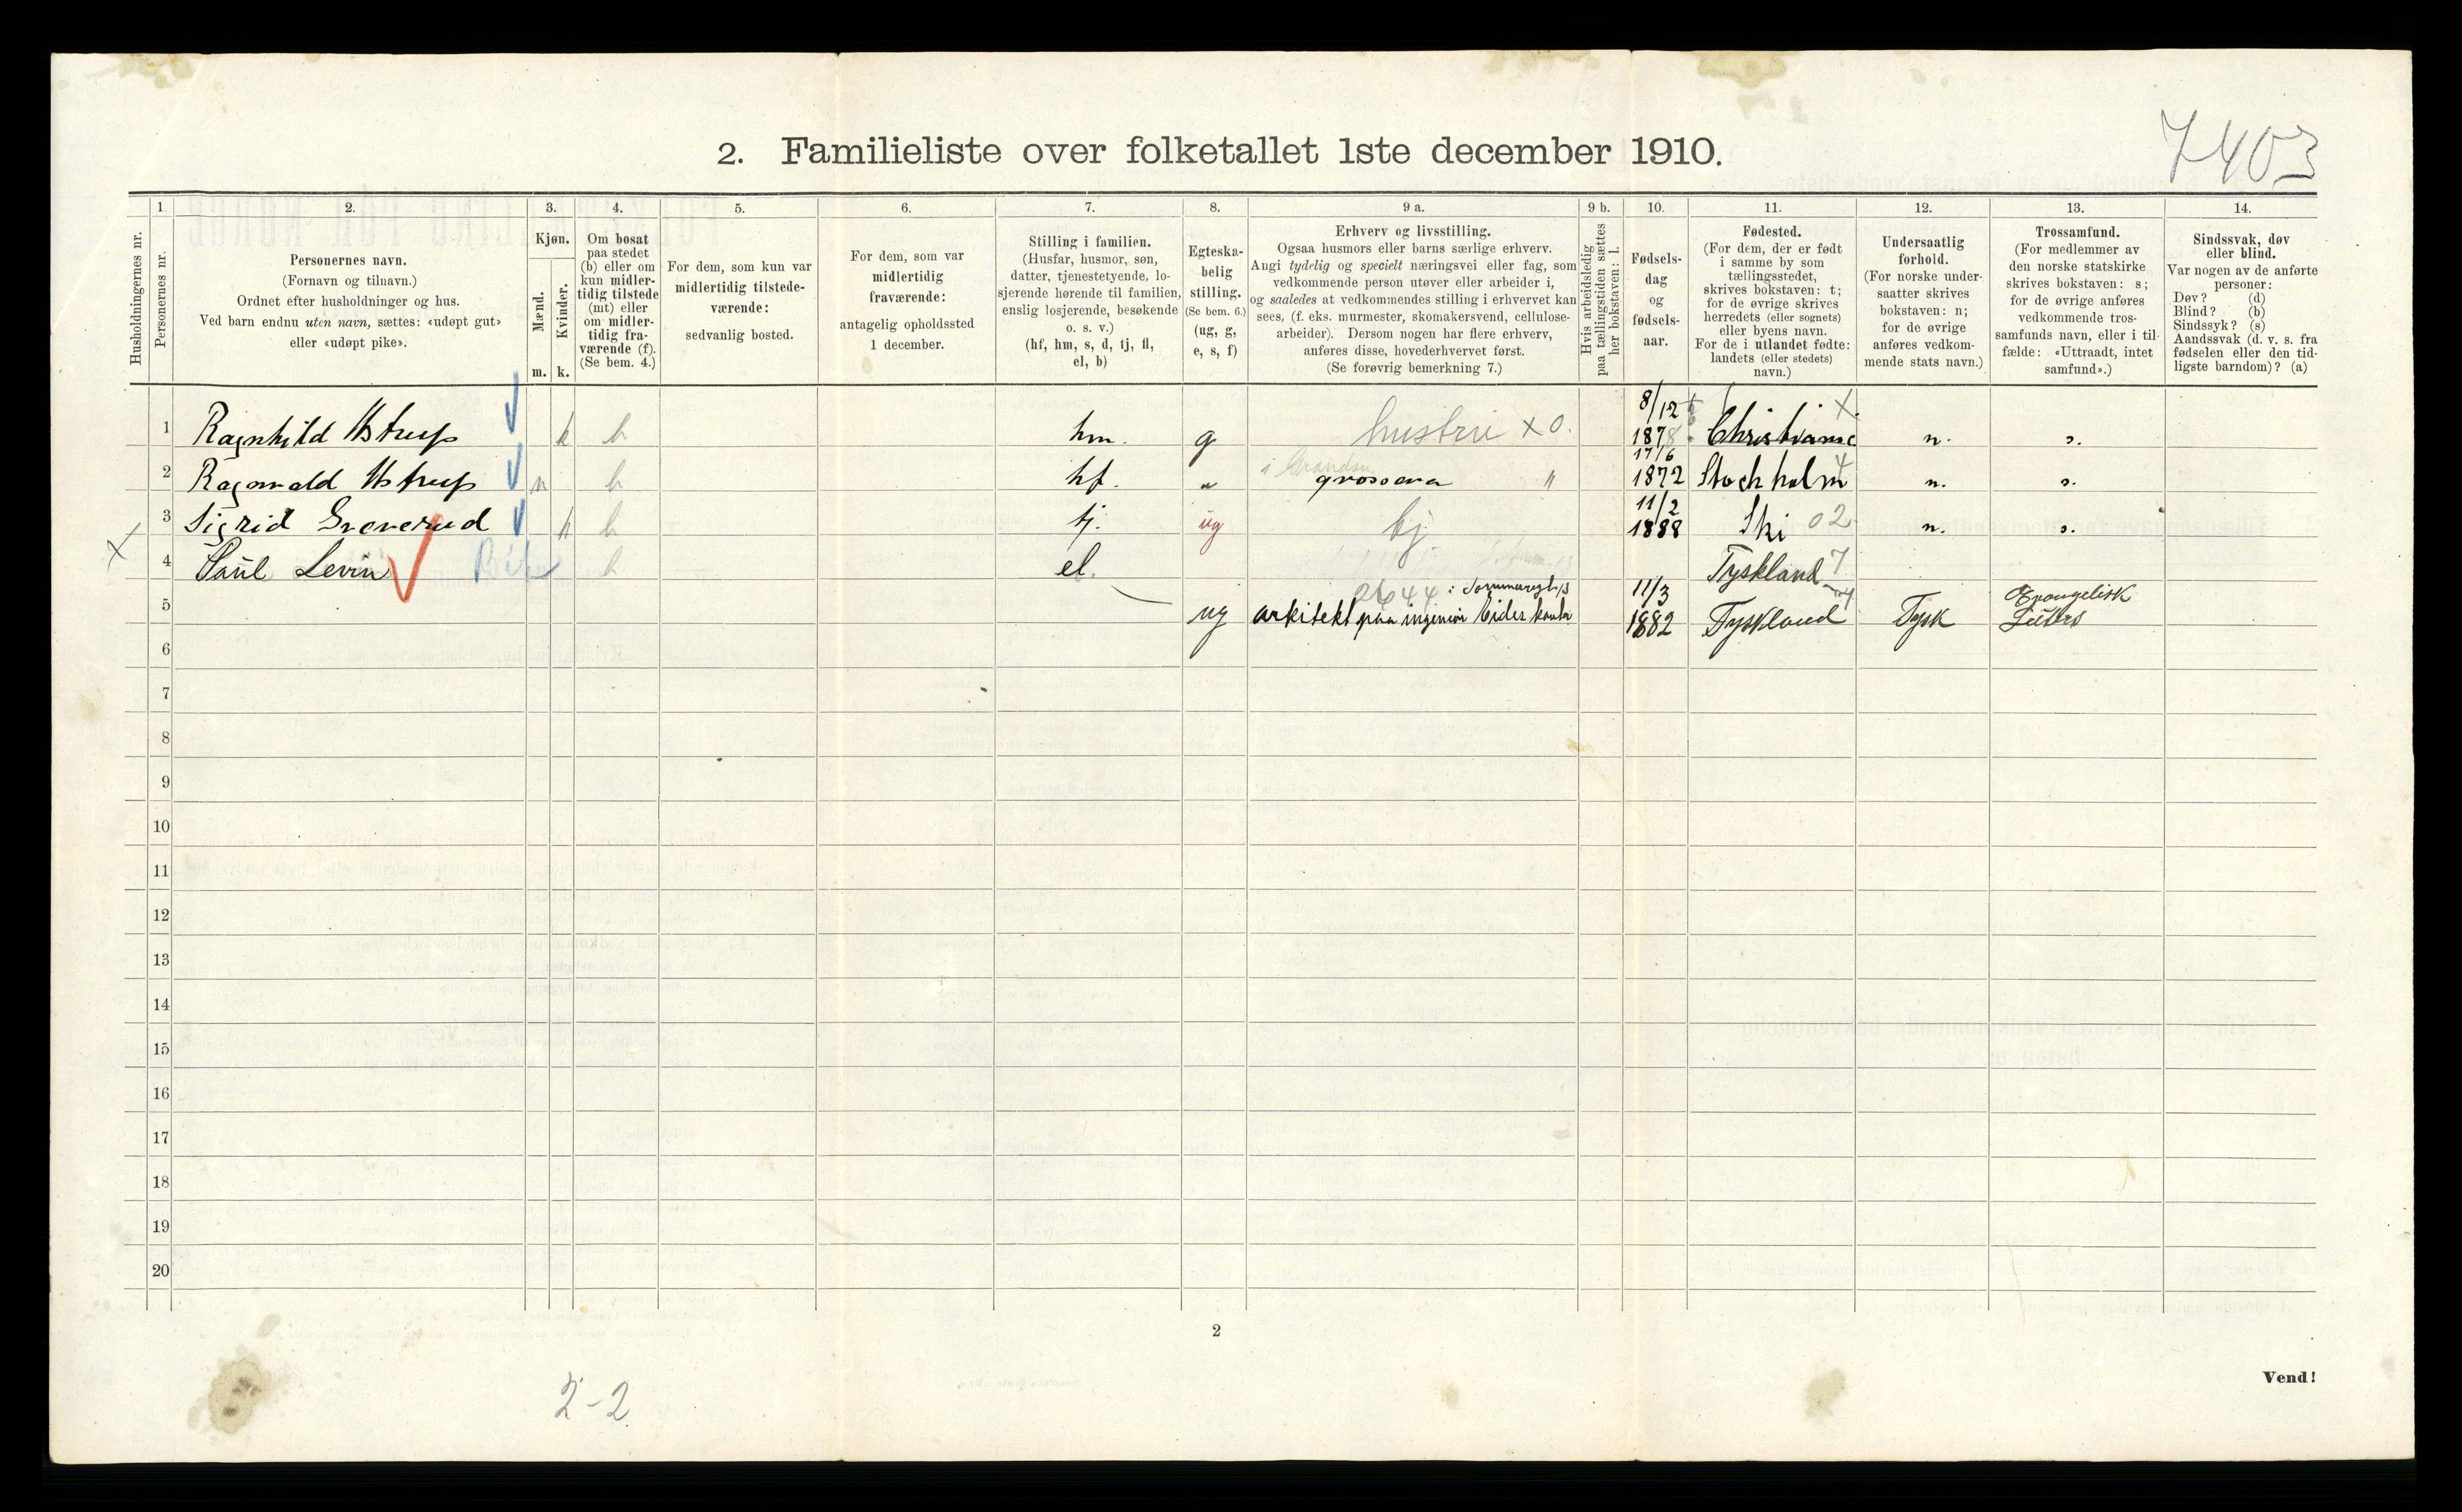 7403
2. Familieliste over folketallet 1ste december 1910.
Husholdningernes nr.
1.
Personernes nr.
2.
Personernes navn.
(Fornavn og tilnavn.)
Ordnet efter husholdninger og hus.
Ved barn endnu uten navn, sættes: «udøpt gut»
eller «udøpt pike».
3.
Kjøn.
Mænd.
Kvinder.
m. k.
4.
Om bosat
paa stedet
(b) eller om
kun midler-
tidig tilstede
(mt) eller
om midler-
tidig fra-
værende (f).
(Se bem. 4.)
5.
For dem, som kun var
midlertidig tilstede-
værende:
sedvanlig bosted.
6.
For dem, som var
midlertidig
fraværende:
antagelig opholdssted
1 december.
7.
Stilling i familien.
(Husfar, husmor, søn,
datter, tjenestetyende, lo-
sjerende hørende til familien,
enslig losjerende, besøkende
o. s. v.)
(hf, hm, s, d, tj, fl,
el, b)
8.
Egteska-
belig
stilling.
(Se bem. 6.)
(ug, g,
e, s, f)
9 a.
Erhverv og livsstilling.
Ogsaa husmors eller barns særlige erhverv.
Angi tydelig og specielt næringsvei eller fag, som
vedkommende person utøver eller arbeider i,
og saaledes at vedkommendes stilling i erhvervet kan
sees, (f. eks. murmester, skomakersvend, cellulose-
arbeider). Dersom nogen har flere erhverv,
anføres disse, hovederhvervet først.
(Se forøvrig bemerkning 7.)
9 b.
Hvis arbeidsledig
paa tællingstiden sættes
her bokstaven: l.
10.
Fødsels-
dag
og
fødsels-
aar.
11.
Fødested.
(For dem, der er født
i samme by som
tællingsstedet,
skrives bokstaven: t;
for de øvrige skrives
herredets (eller sognets)
eller byens navn.
For de i utlandet fødte:
landets (eller stedets)
navn.)
12.
Undersaatlig
forhold.
(For norske under-
saatter skrives
bokstaven: n;
for de øvrige
anføres vedkom-
mende stats navn.)
13.
Trossamfund.
(For medlemmer av
den norske statskirke
skrives bokstaven: s;
for de øvrige anføres
vedkommende tros-
samfunds navn, eller i til-
fælde: «Uttraadt, intet
samfund».)
14.
Sindssvak, døv
eller blind.
Var nogen av de anførte
personer:
Døv? (d)
Blind? (b)
Sindssyk? (s)
Aandssvak (d. v. s. fra
fødselen eller den tid-
ligste barndom)? (a)
1 Ragnhild Ustrup k b hm. g hustru x 0. 8/12 1878 Christiania n. s.
2 Ragnvald Ustrup m b hf. " grosserer " 17/6 1872 Stockholm n. s.
3 Sigrid k b tj. ug tj 11/2 1888 Ski 02 n. s.
x 4 Paul Levin b el. Tyskland 7
5 ug arkitekt paa ingeniør Eides kontor 11/3 1882 Tyskland Tysk Evangelisk Luthers
6
7
8
9
10
11
12
13
14
15
16
17
18
19
20
2
Vend!
2-2